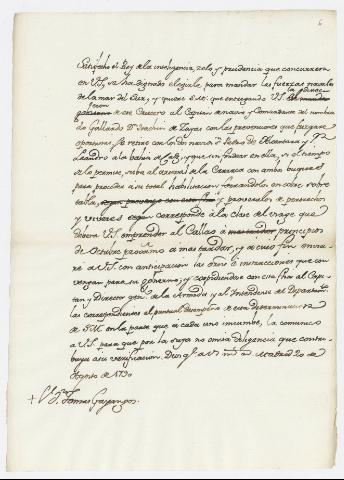 6
Satisfecho el Rey de la inteligencia, zelo, y prudencia que concurren
en V.S, se ha dignado elegirle para mandar las fuerzas navales
de la mar del Sur, y quiere S.M. que entregando V.S. la direcc
cion de ese Crucero al Capitan de navio y Comandante del nombra
do Gallardo Dn. Joaquin de Zayas con las prevenciones que juzgare
oportunas, se retire con los dos navios Sn. Pedro de Alcantara y Sn.
Leandro a la bahia de Cadiz, y que sin fondear en ella, si el tiempo
se lo permite, suba al arsenal de la Carraca con ambos buques
para proceder a su total habilitacion, forrandolos en cobre sobre
tabla, y proveerlos de pertrechos
y viveres segun corresponde a la clase del viage que
debera V.S. emprender al Callao a principios
de Octubre proximo a mas tardar, y a cuyo fin envia
re a V.S. con anticipacion las ordns. e instrucciones que con
vengan para su gobierno; y expidiendose con esta fha al Capi
tan y Director gral. de la Armada y al Intendente del Departamto.
las correspondientes al puntual desempeño de esta determinacion
de S.M. en la parte que a cada uno incumbe, la comunico
a V.S. para que por la suya no omita diligencia que contri
buya a su verificacion. Dios gue. a V.S. ms. as. Madrid 20 de
Agosto de 1790
+ Sr. Dn. Tomas Gayangos.